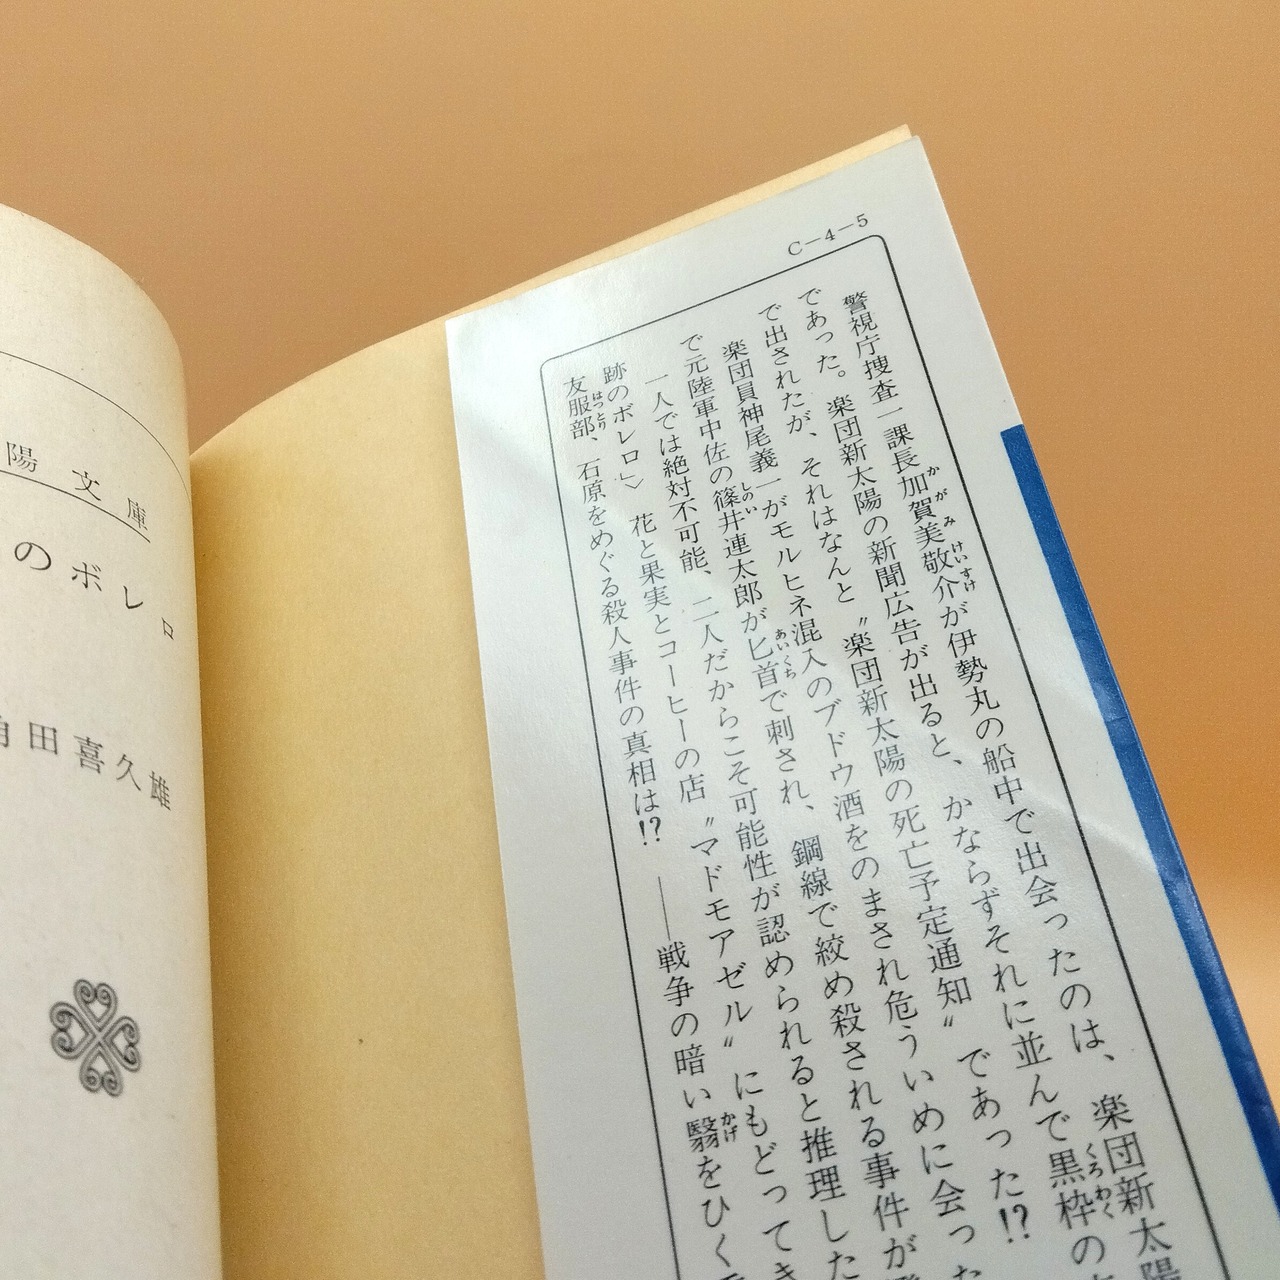 C-4-5
警視庁捜査一課長加賀美敬介が伊勢丸の船中で出会ったのは、楽団新太陽
かがみ けいすけ
であった。楽団新太陽の新聞広告が出ると、かならずそれに並んで黒枠の
くろわく
で出されたが、それはなんと〝楽団新太陽の死亡予定通知〟であった!?
楽団員神尾義一がモルヒネ混入のブドウ酒をのまされ危ういめに会った
で元陸軍中佐の篠井連太郎が匕首で刺され、鋼線で絞め殺される事件が
しのい あいくち
一人では絶対不可能、二人だからこそ可能性が認められると推理した
跡のボレロ〉 花と果実とコーヒーの店〝マドモアゼル〟にもどってき
友服部、石原をめぐる殺人事件の真相は!? ――戦争の暗い翳をひく
はっとり かげ
陽文庫
のボレロ
角田喜久雄